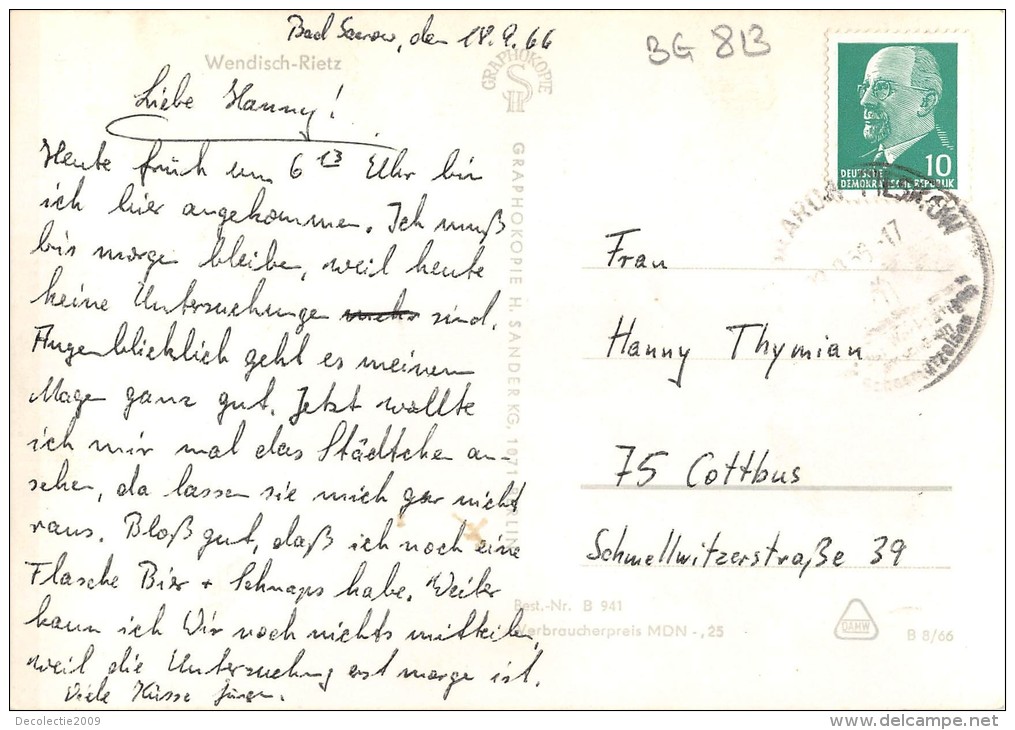 Bad Saarow, den 18.9.66
BG 813
Wendisch-Rietz
GRAPHOKOPIE
Liebe Hanny!
Heute früh um 6 13 Uhr bin
ich hier angekommen. Ich muß
bis morgen bleiben, weil heute
keine Untersuchungen sind.
Augenblicklich geht es meinem
Magen ganz gut. Jetzt wollte
ich mir mal das Städtchen an-
sehen, da lassen sie mich gar nicht
raus. Bloß gut, daß ich noch eine
Flasche Bier + Schnaps habe. Weiter
kann ich Dir noch nichts mitteilen,
weil die Untersuchung erst morgen ist.
Viele Küsse Jürgen.
GRAPHOKOPIE H. SANDER KG, 1071 BERLIN
10
DEUTSCHE
DEMOKRATISCHE REPUBLIK
Frau
Hanny Thymian
75 Cottbus
Schmellwitzerstraße 39
Best.-Nr. B 941
Verbraucherpreis MDN -,25
DAMW
B 8/66
Decolectie2009
www.delcampe.net